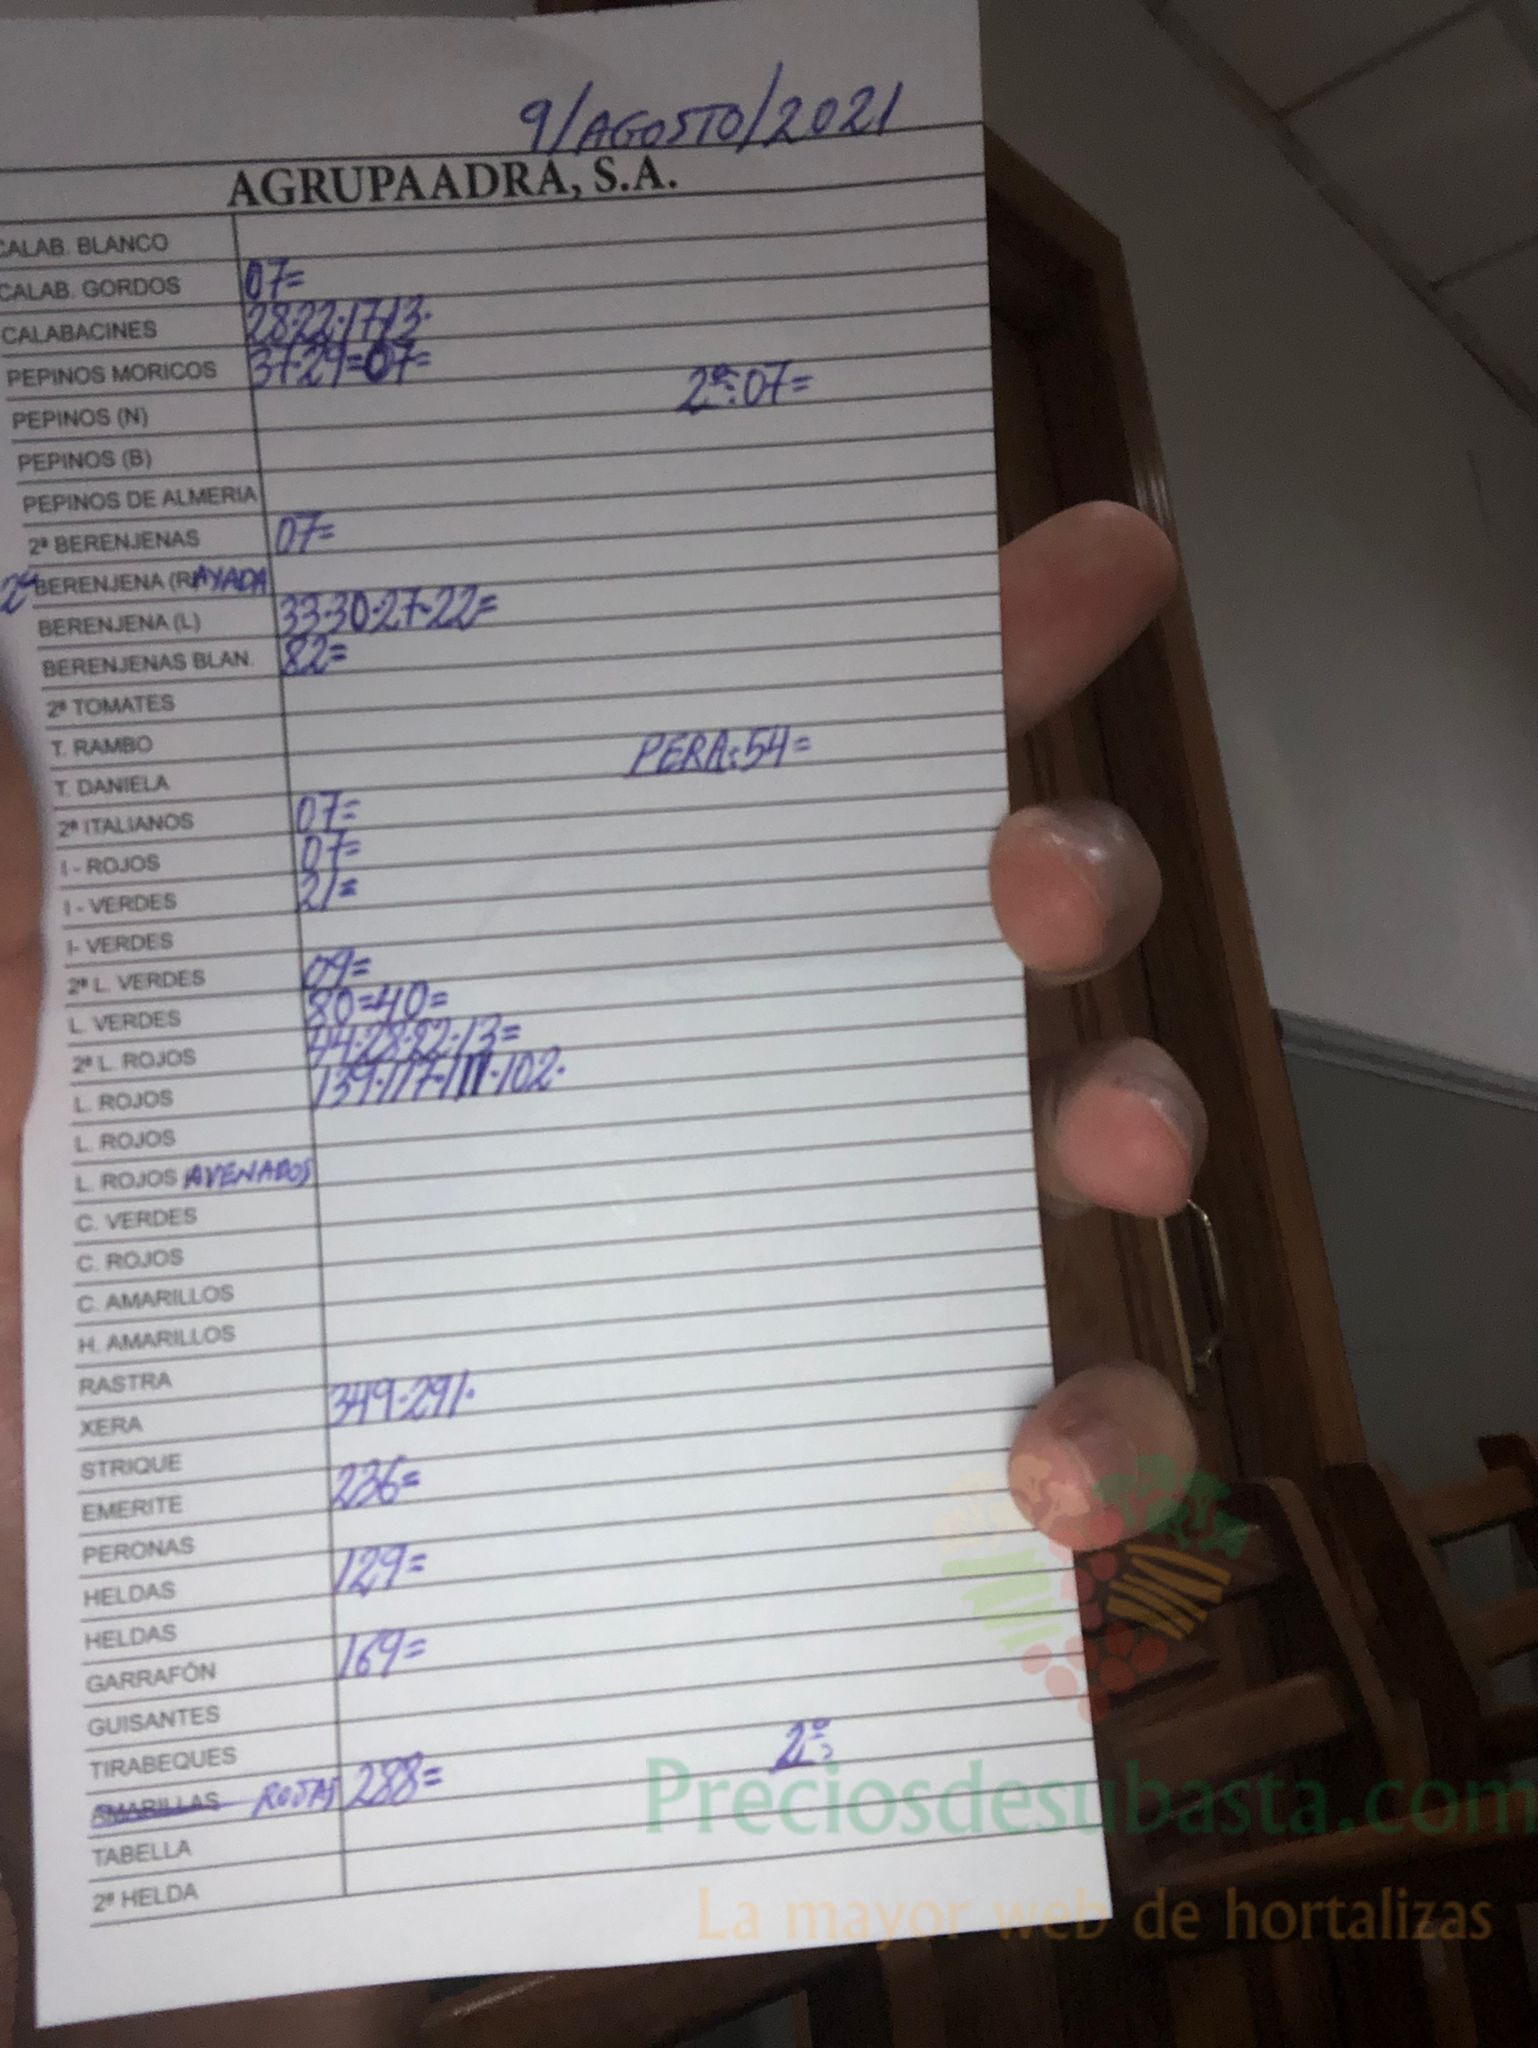 9/AGOSTO/2021
AGRUPAADRA, S.A.
CALAB. BLANCO
CALAB. GORDOS 07=
CALABACINES 28·22·17·13·
PEPINOS MORICOS 37·29=07= 2ª:07=
PEPINOS (N)
PEPINOS (B)
PEPINOS DE ALMERIA
2ª BERENJENAS 07=
2ª BERENJENA (RAYADA
BERENJENA (L) 33·30·27·22=
BERENJENAS BLAN. 82=
2ª TOMATES
T. RAMBO PERA:54=
T. DANIELA
2ª ITALIANOS 07=
I - ROJOS 07=
I - VERDES 21=
I- VERDES
2ª L. VERDES 09=
L. VERDES 80=40=
2ª L. ROJOS 44·28·22·13=
L. ROJOS 139·117·111·102·
L. ROJOS
L. ROJOS AVENADOS
C. VERDES
C. ROJOS
C. AMARILLOS
H. AMARILLOS
RASTRA
XERA 349·291·
STRIQUE
EMERITE 236=
PERONAS
HELDAS 129=
HELDAS
GARRAFÓN 169=
GUISANTES
TIRABEQUES 2ª:
AMARILLAS ROJAS 288=
TABELLA
2ª HELDA
Preciosdesubasta.com
La mayor web de hortalizas